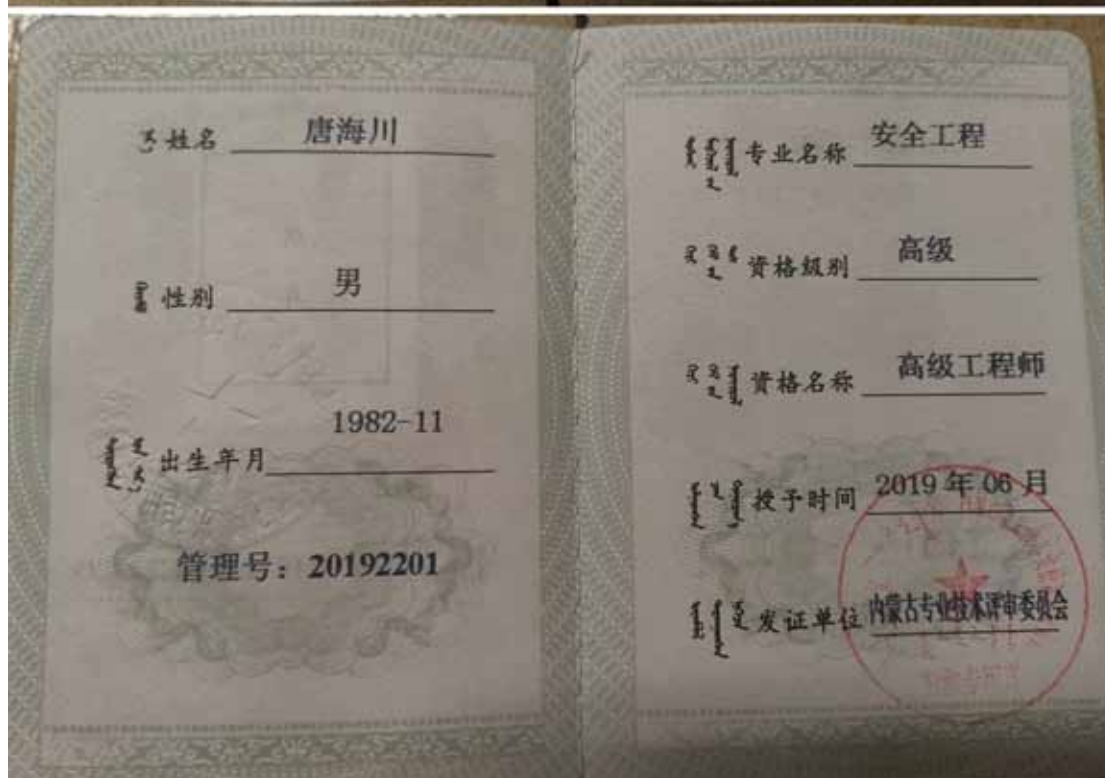 姓名 唐海川
性别 男
出生年月 1982-11
管理号：20192201
专业名称 安全工程
资格级别 高级
资格名称 高级工程师
授予时间 2019年06月
发证单位 内蒙古专业技术评审委员会